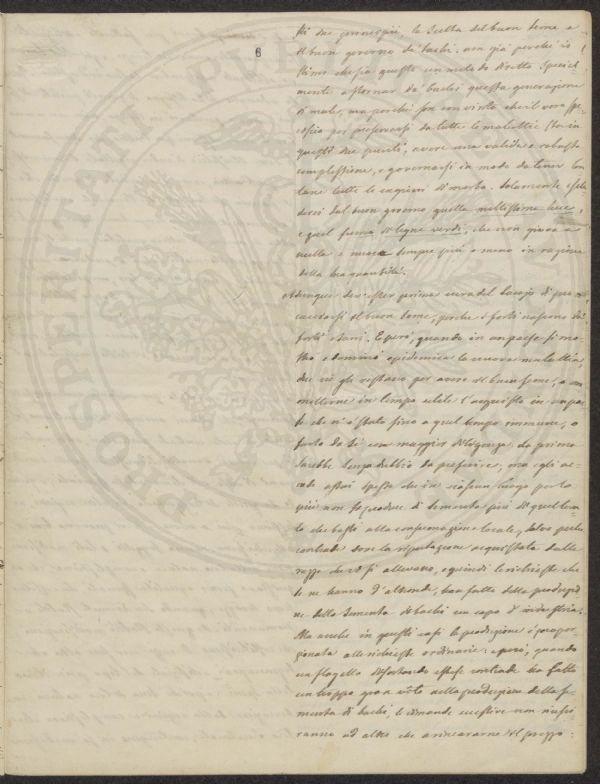 6
sti due principii, la scelta del buon seme e
il buon governo de' bachi: non già perchè io
stimi che sia questo un metodo diretto special-
mente a stornar da' bachi questa generazione
di male, ma perchè son convinto che il vero spe-
cifico per preservarsi da tutte le malattie stia in
questi due punti, avere una valida e robusta
complessione, e governarsi in modo da tener lon
tane tutte le cagioni di morbo. Solamente esclu
derei dal buon governo quella moltissima luce,
e quel fumo di legne verdi, che non giova a
nulla e nuoce sempre più o meno in ragione
della sua quantità.
Adunque dev'esser prima cura del bacajo di pro
cacciarsi il buon seme, perchè i forti nascono da'
forti e sani. E però, quando in un paese si mo
strò e dominò epidemica la nuova malattia,
due vie gli restano per avere il buon seme, o com
metterne in tempo utile l'acquisto in un pae
se che n'è stato fino a quel tempo immune, o
farlo da sè con maggior diligenza. La prima
sarebbe senza dubbio da preferire, ma egli ac-
cade assai spesso che in nessun luogo per lo
più non si produce di sementa più di quel tan
to che basti alla consumazione locale, salvo poche
contrade dove la riputazione acquistata dalle
razze che vi si allevano, e quindi le richieste che
se ne hanno d'altronde, han fatto della produzio
ne della sementa di bachi un capo d'industria.
Ma anche in questi casi la produzione è propor-
zionata alle richieste ordinarie: e però, quando
un flagello disertando estese contrade ha fatto
un troppo gran vôto nella produzione della se-
menta di bachi, le dimande eccessive non riusci
ranno ad altro che a rincararne il prezzo:
PROSPERITATI PUBLICAE